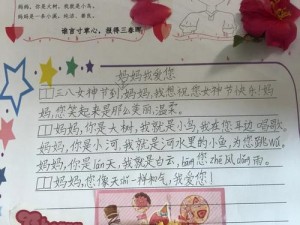 妈妈,你是大树,我就是小鸟,
妈妈是一条小溪,
谁言寸草心,报得三春晖。
妈妈我爱您
三八女神节到了妈妈,我想祝您女神节快乐!妈
妈,您笑起来是那么美丽,温柔。
妈妈,你是大树,我就是小鸟,我在您耳边唱歌,
妈妈,你是小河,我就是河水里的小鱼,为您跳wǔ,
妈妈,你是lán天,我就是白云,bàn您zhē风dǎn雨。
妈妈,您像天shǐ一样和气,我爱您!